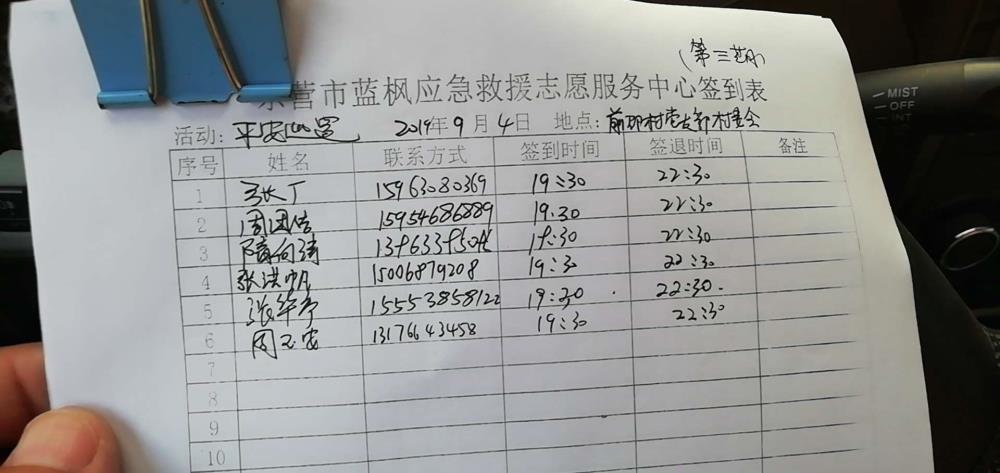 (第三期)
东营市蓝枫应急救援志愿服务中心签到表
活动: 2019年9月4日 地点:
序号 姓名 联系方式 签到时间 签退时间 备注
1 张丁 15963080369 19:30 22:30
2 周国信 15954686889 19:30 22:30
3 19:30 22:30
4 张洪帆 15006879208 19:30 22:30
5 张华宁 15553858122 19:30 22:30
6 周玉安 13176643458 19:30 22:30
7
8
9
10
MIST
OFF
INT